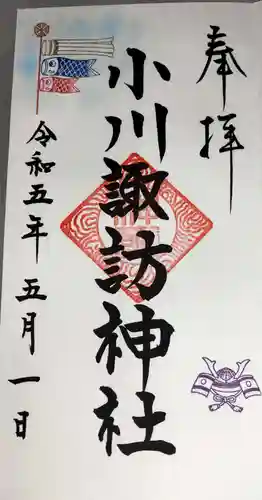 奉拝
小川諏訪神社
令和五年五月一日